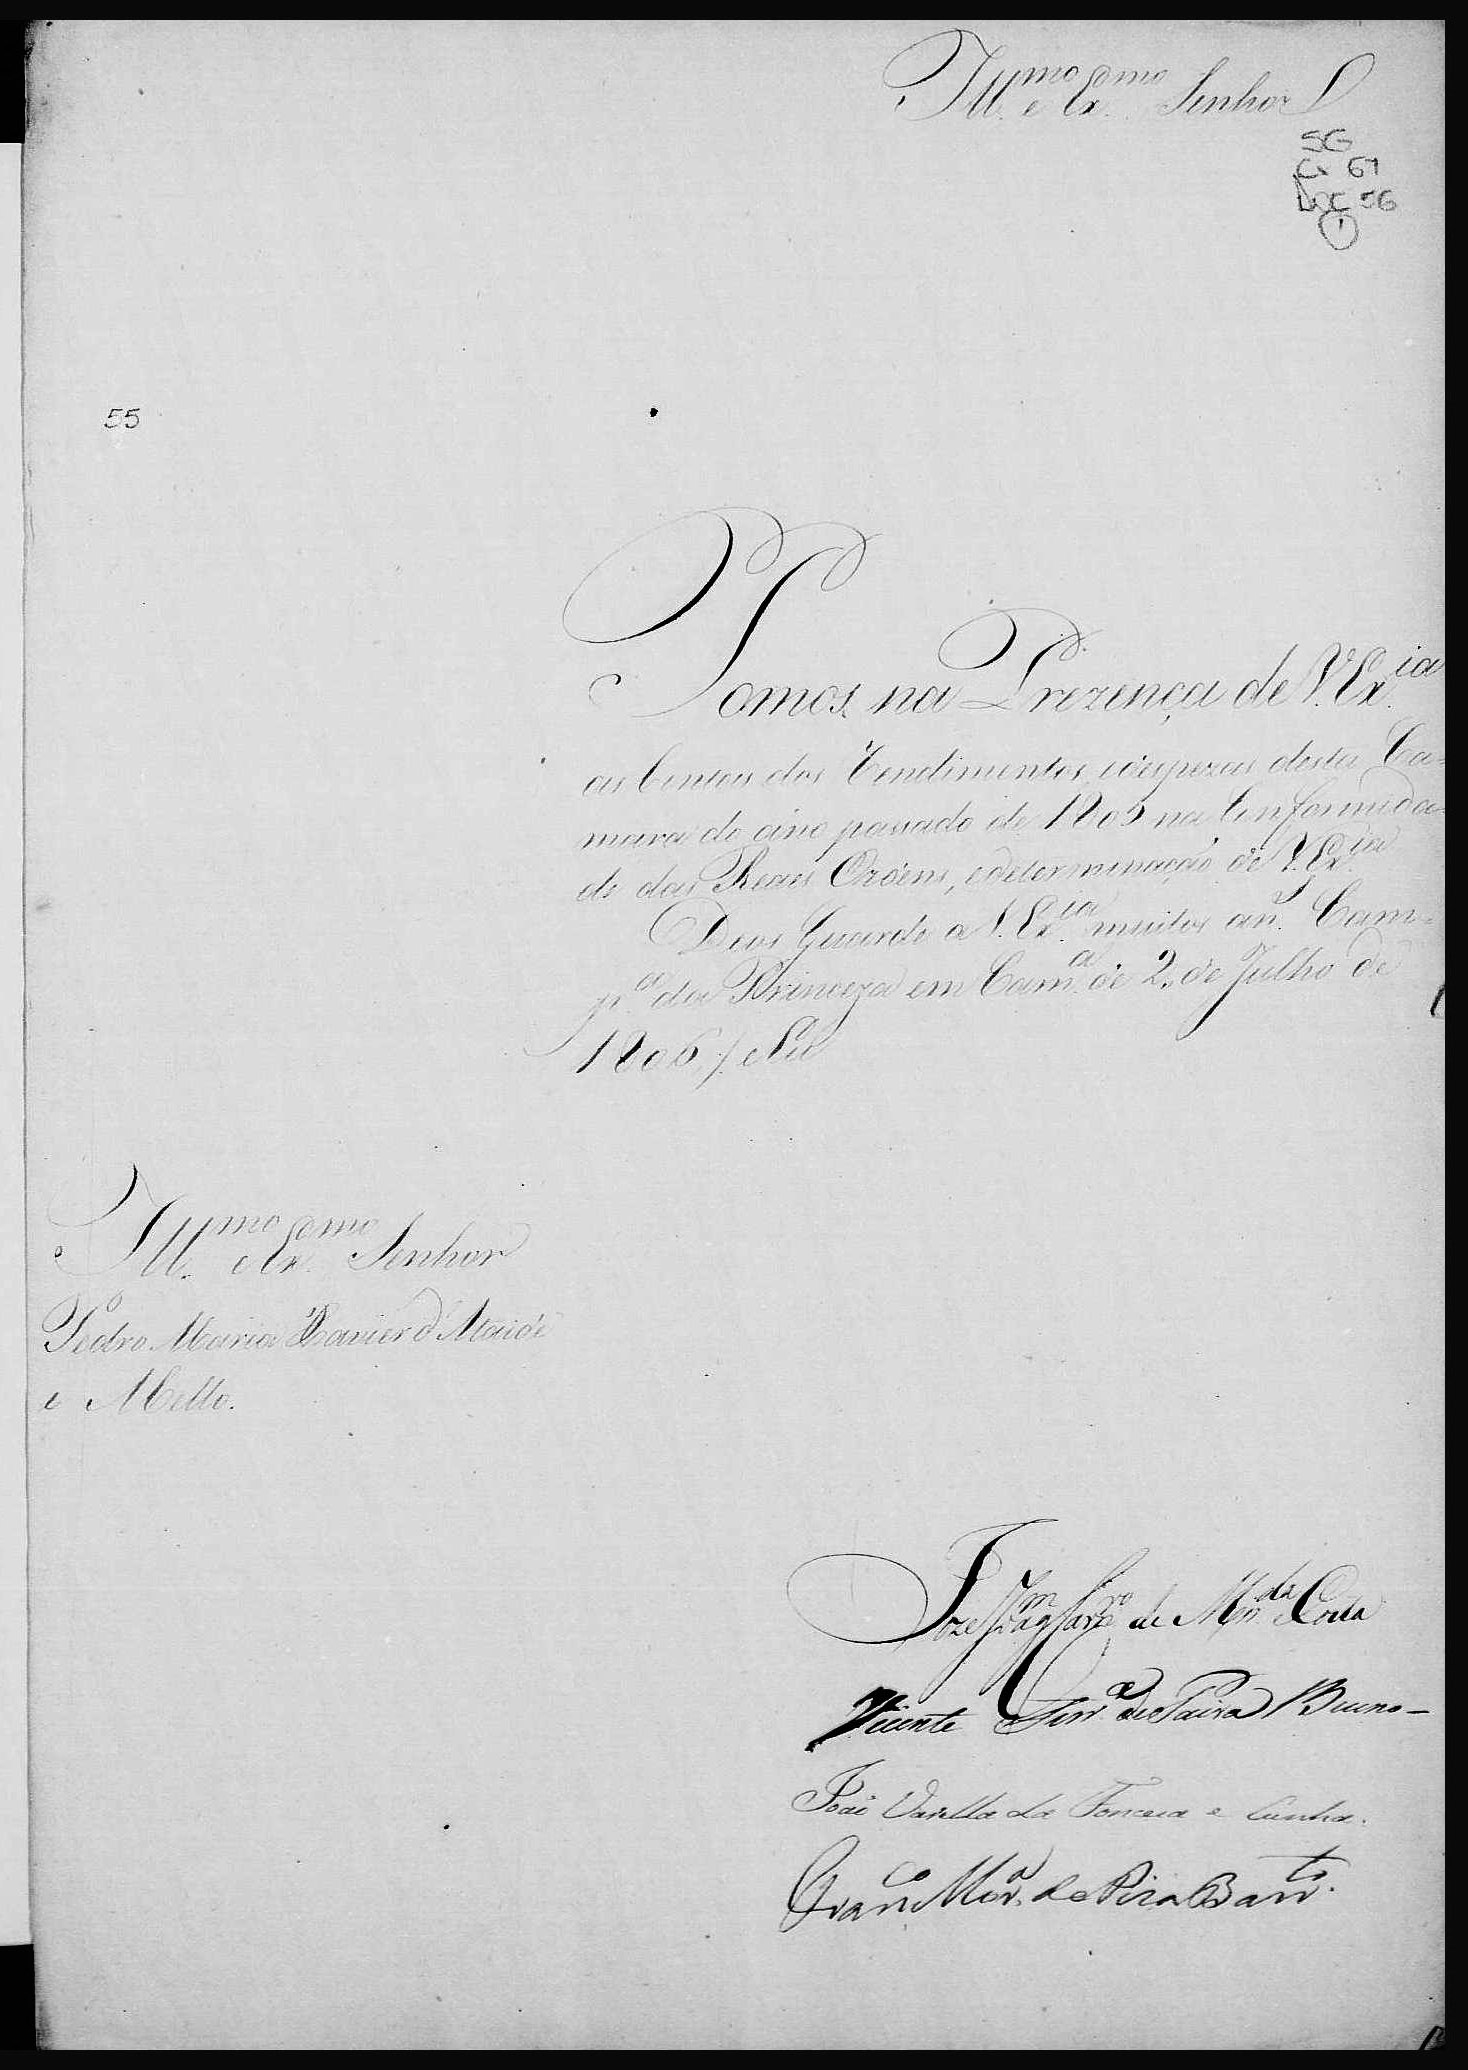 Ill.mo e Ex.mo Senhor
SG
Cx 61
DOC 56
1
55
Pomos na Prezença de V. Ex.ia
as Contas dos Rendimentos, edespezas desta Ca-
mara do ano passado de 1805 na Conformida-
de das Reaes Ordens, edeterminação de V. Ex.ia
Deos Guarde a V. Ex.ia muitos an.s Cam-
p.a da Princeza em Cam.a de 2, de Julho de
1806 /
Ill.mo e Ex.mo Senhor
Pedro Maria Xavier d'Ataide
e Mello.
Joze Joaq.m Carn.ro de Mir.da e Costa
Vicente Ferr.a de Paiva Bueno
João Varella da Fonceca e Cunha.
Fran.co Mor.a de Piza Barr.to